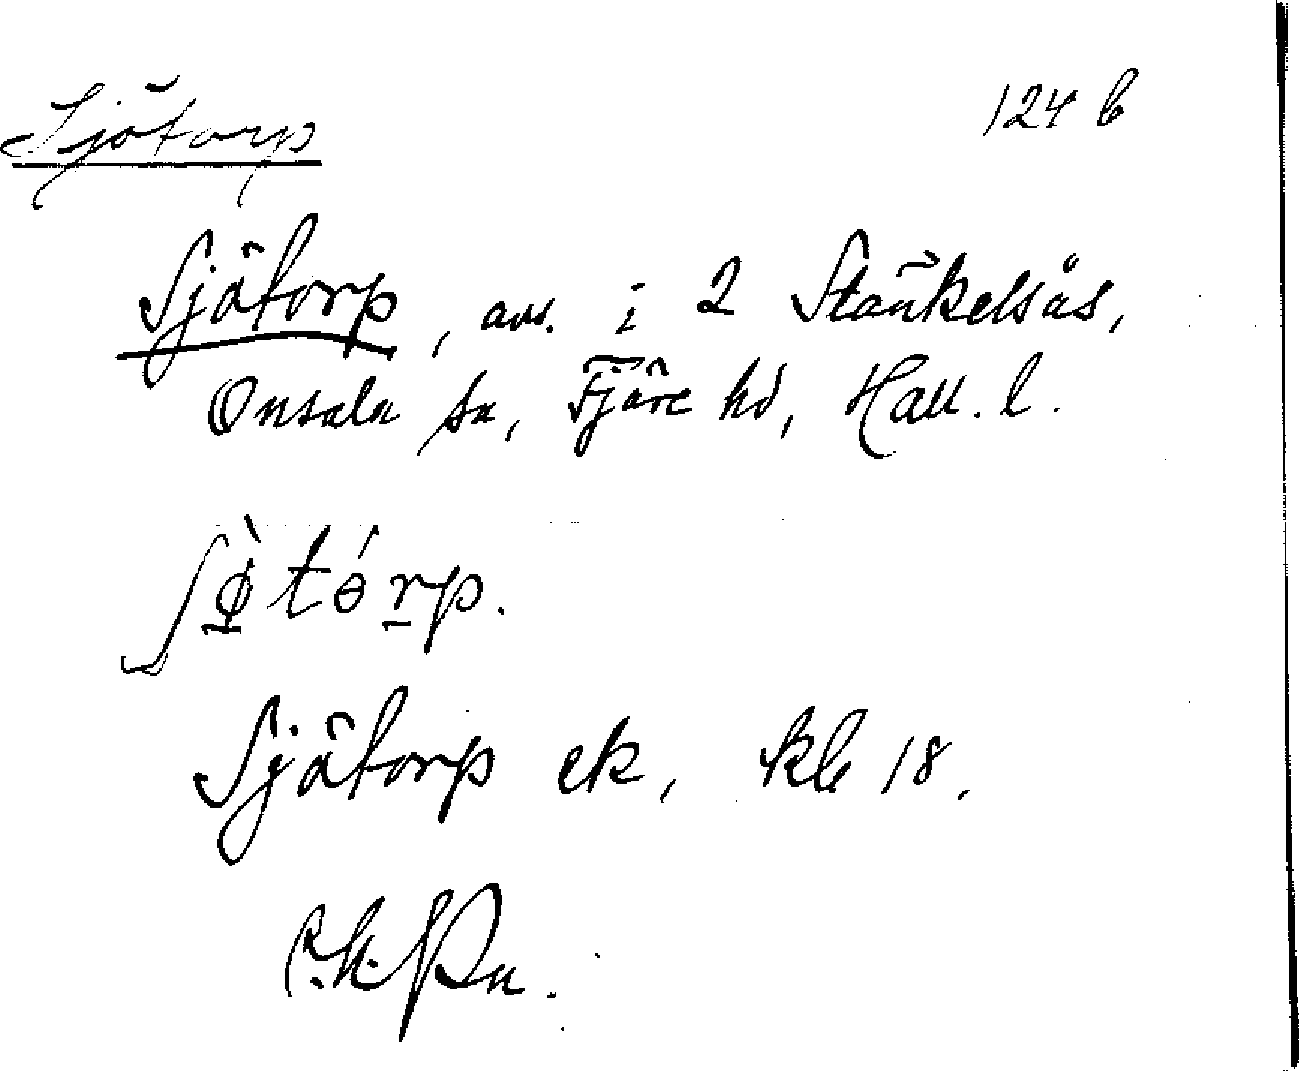 Sjötorp 124 b
Sjötorp, avs. i 2 Stänkelsås,
Onsala sn, Fjäre hd, Hall. l.
ʃø̀tɵ́rp.
Sjötorp ek, kb 18.